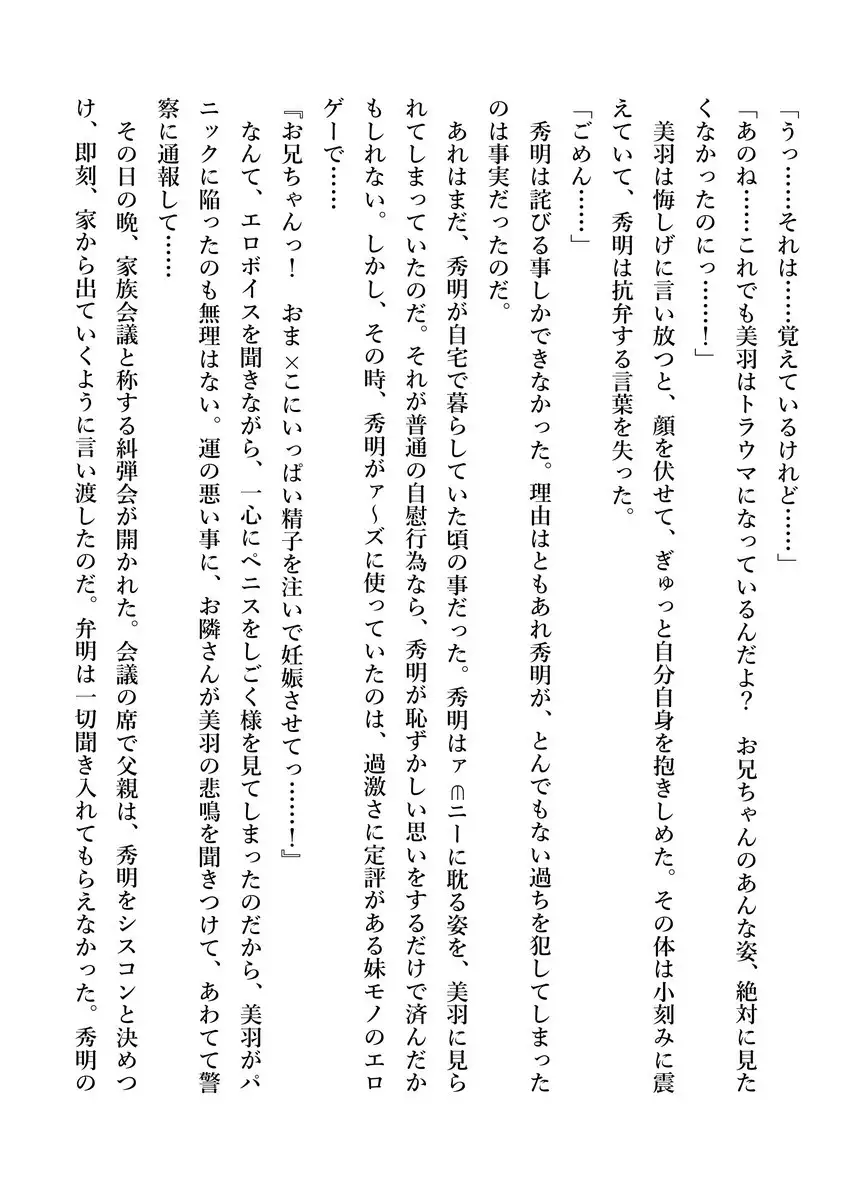 「うっ……それは……覚えているけれど……」
「あのね……これでも美羽はトラウマになっているんだよ？　お兄ちゃんのあんな姿、絶対に見た
くなかったのにっ……！」
　美羽は悔しげに言い放つと、顔を伏せて、ぎゅっと自分自身を抱きしめた。その体は小刻みに震
えていて、秀明は抗弁する言葉を失った。
「ごめん……」
　秀明は詫びる事しかできなかった。理由はともあれ秀明が、とんでもない過ちを犯してしまった
のは事実だったのだ。
　あれはまだ、秀明が自宅で暮らしていた頃の事だった。秀明はァ∋ニーに耽る姿を、美羽に見ら
れてしまっていたのだ。それが普通の自慰行為なら、秀明が恥ずかしい思いをするだけで済んだか
もしれない。しかし、その時、秀明がァ～ズに使っていたのは、過激さに定評がある妹モノのエロ
ゲーで……
『お兄ちゃんっ！　おま×こにいっぱい精子を注いで妊娠させてっ……！』
　なんて、エロボイスを聞きながら、一心にペニスをしごく様を見てしまったのだから、美羽がパ
ニックに陥ったのも無理はない。運の悪い事に、お隣さんが美羽の悲鳴を聞きつけて、あわてて警
察に通報して……
　その日の晩、家族会議と称する糾弾会が開かれた。会議の席で父親は、秀明をシスコンと決めつ
け、即刻、家から出ていくように言い渡したのだ。弁明は一切聞き入れてもらえなかった。秀明の